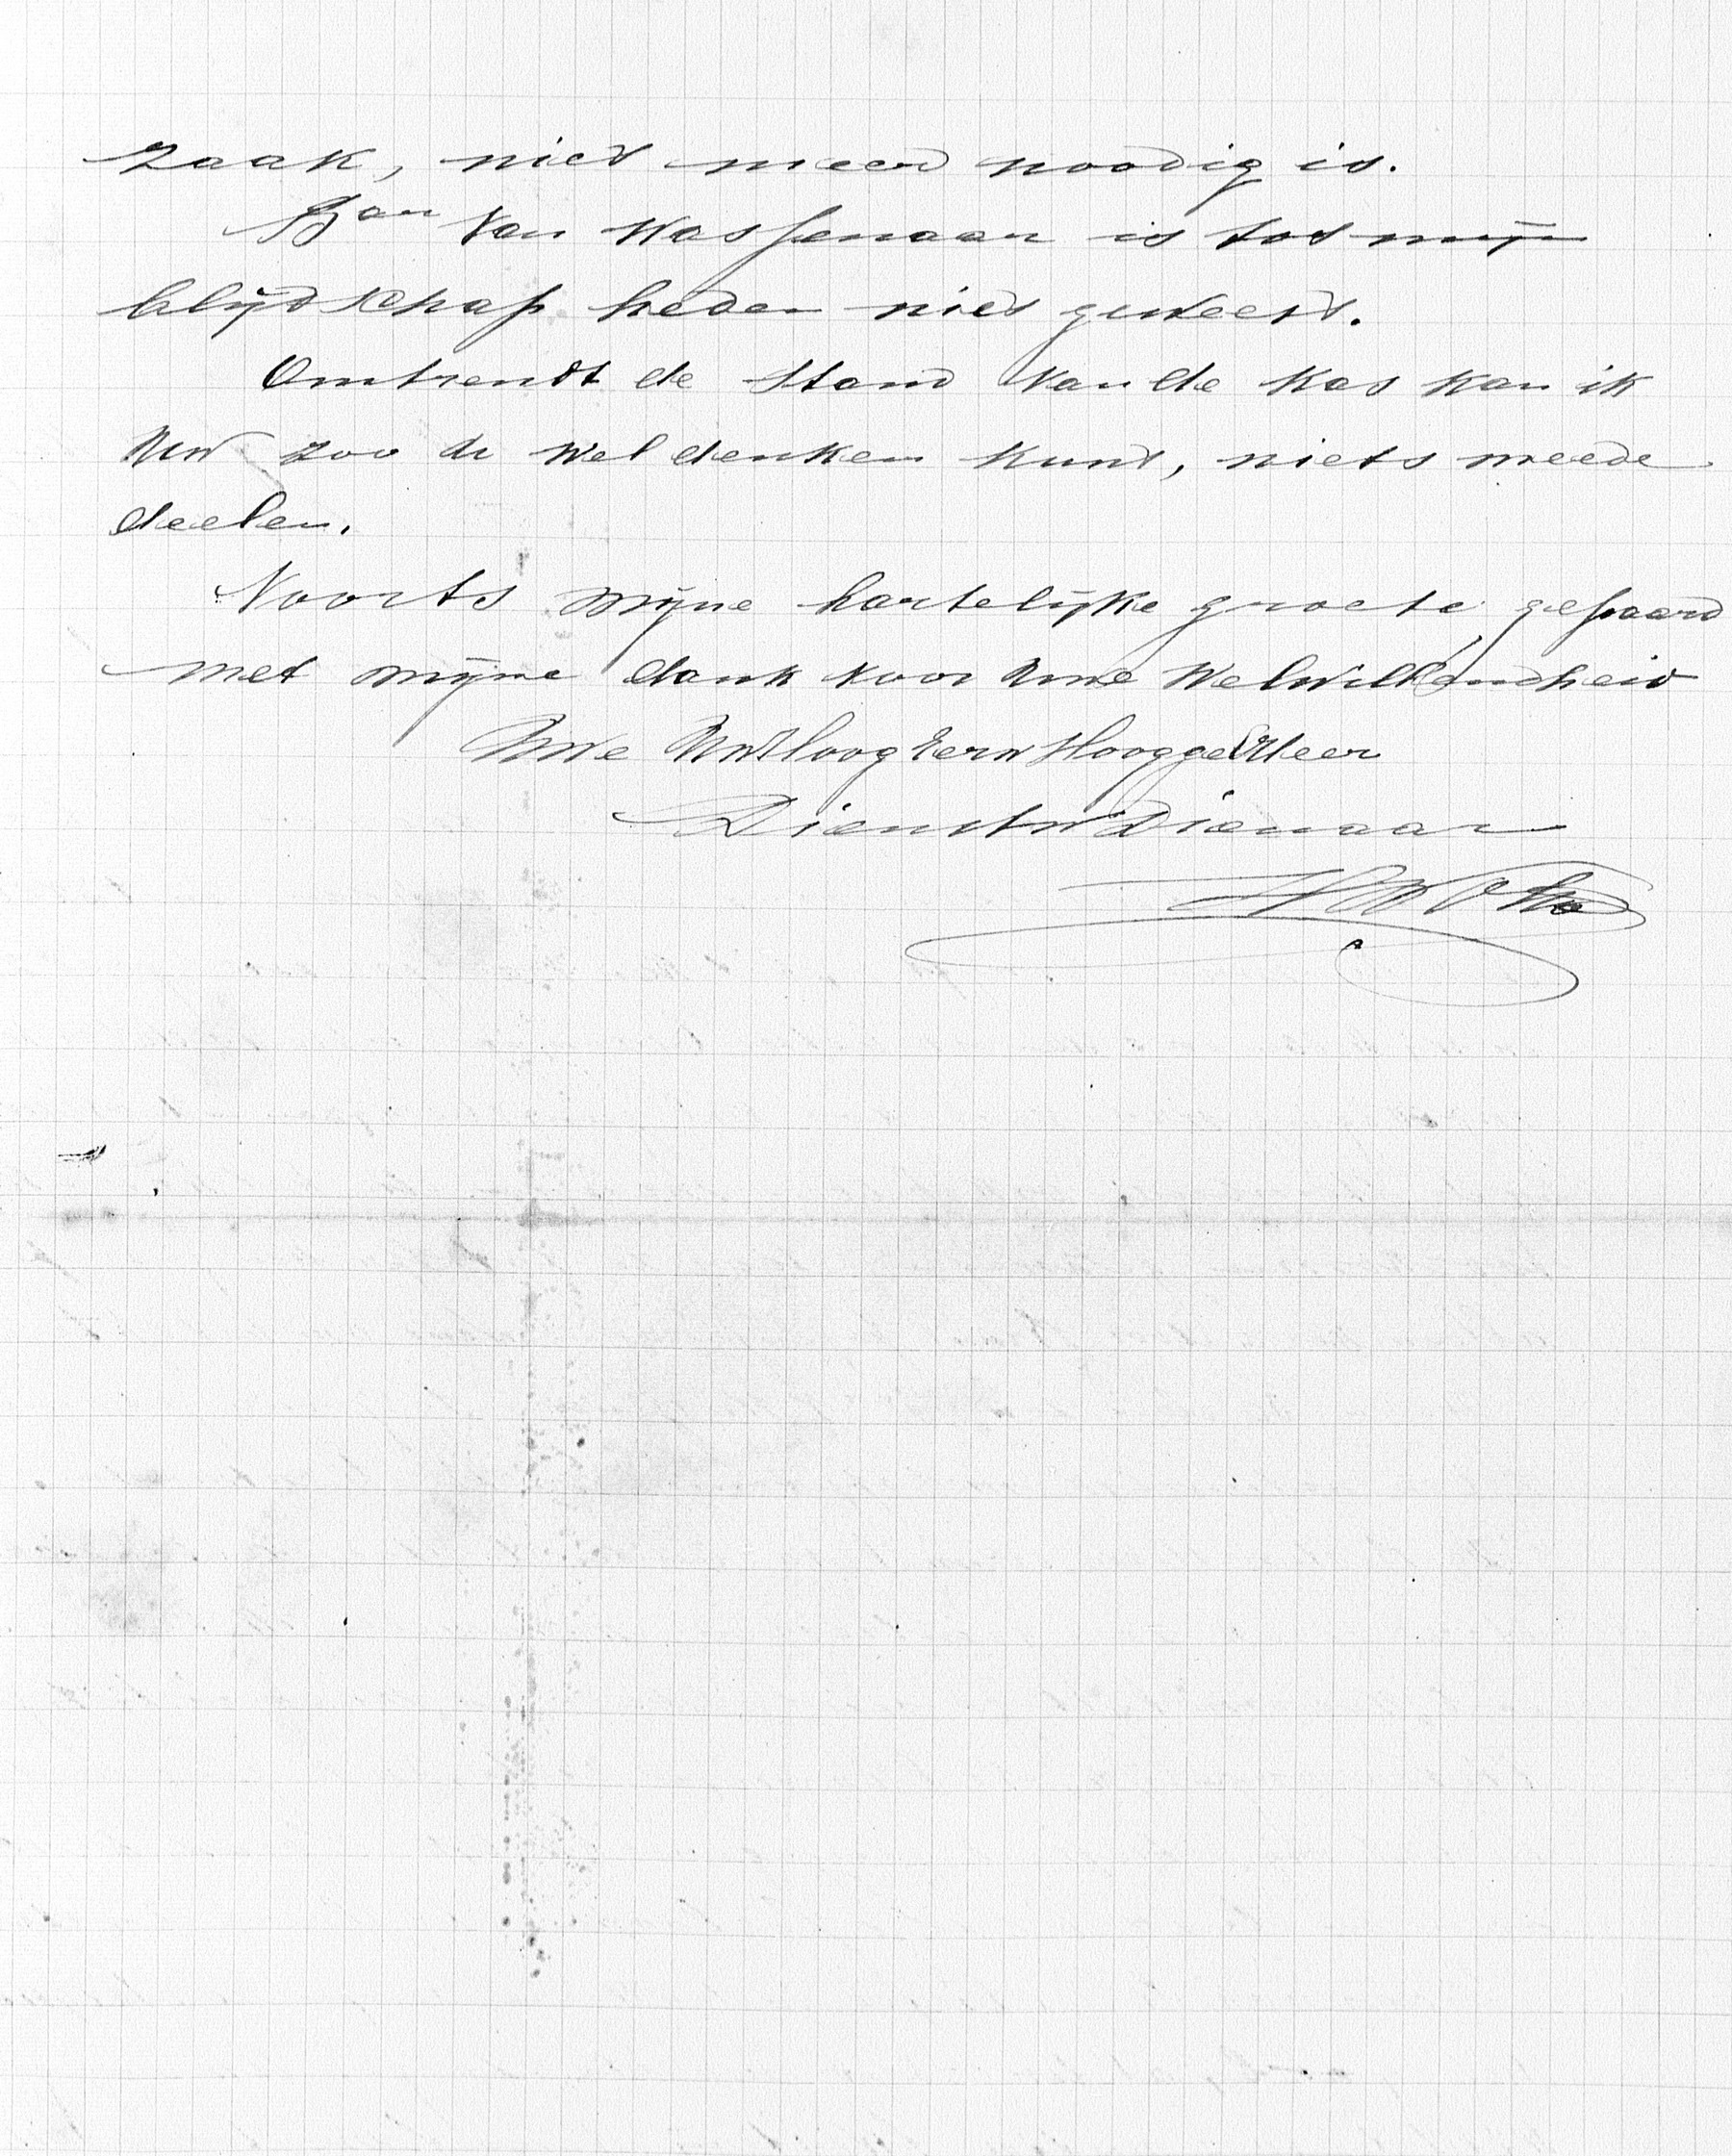 zaak, niet meer noodig is.
Bon Van Wassenaar is tot mijn
blijdschap heden niet geweest.
Omtrendt de stand van de kas kan ik
Uw zoo U wel denken kunt, niets meede
deelen.
Voorts mijne hartelijke groete gepaard
met mijne dank voor Uwe Welwillendheid
Uwe HoogEerw Hooggel Heer
Dienstw Dienaar